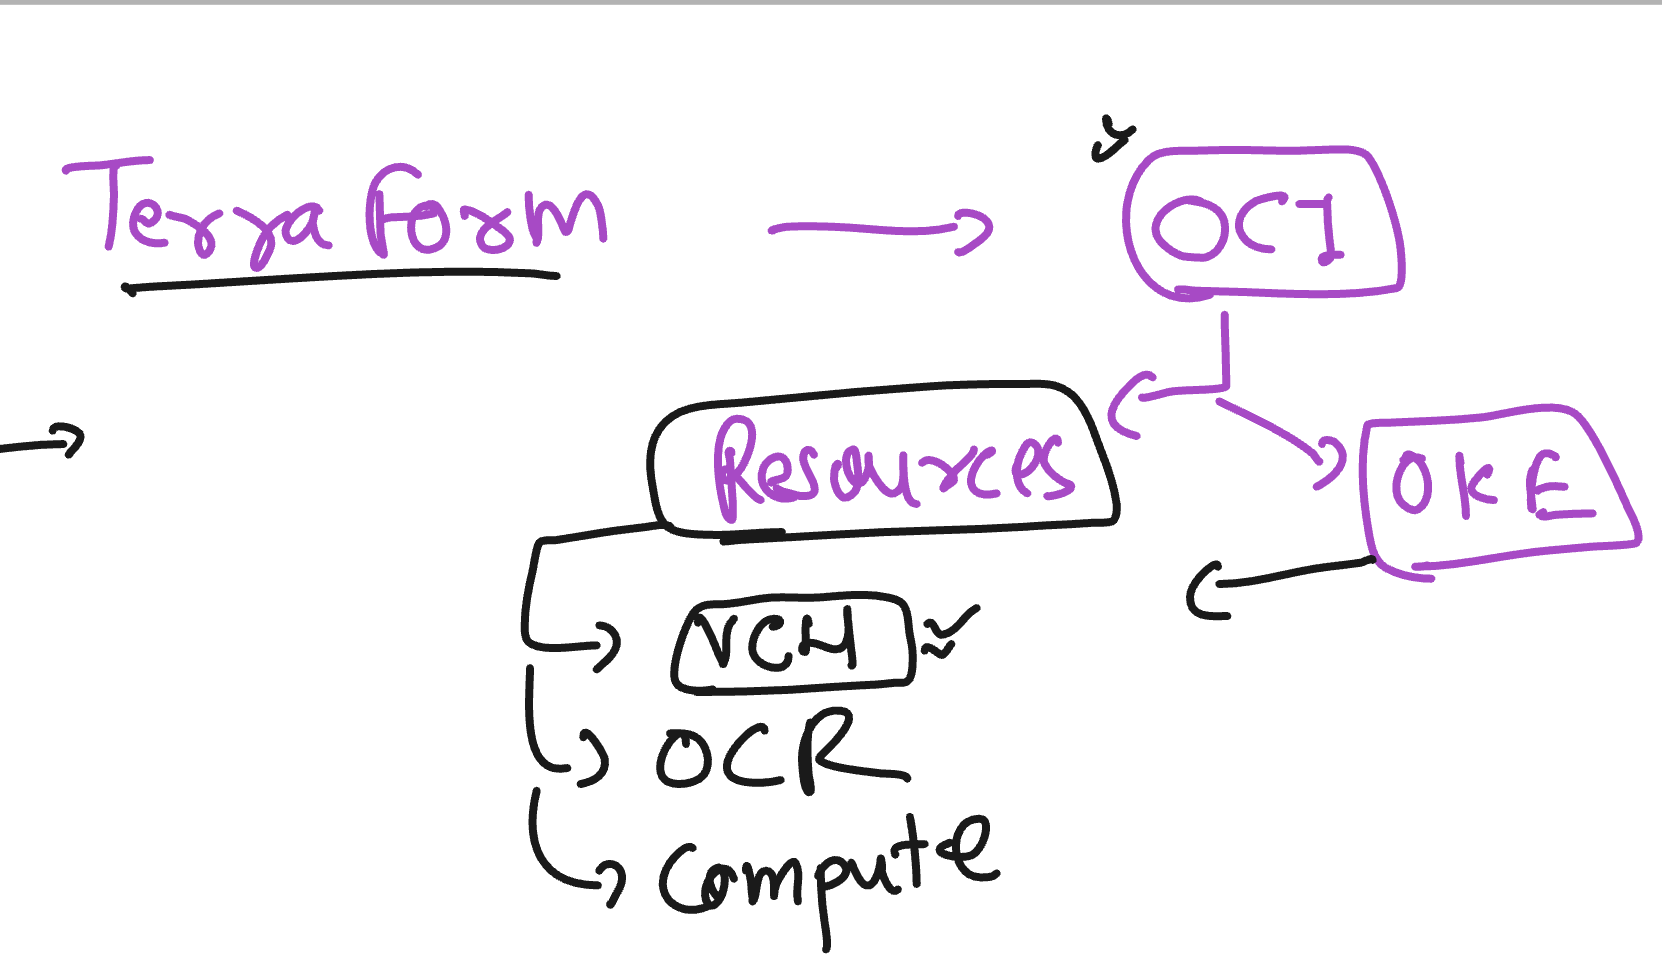 Terraform
OCI
Resources
OKE
VCN
OCR
Compute